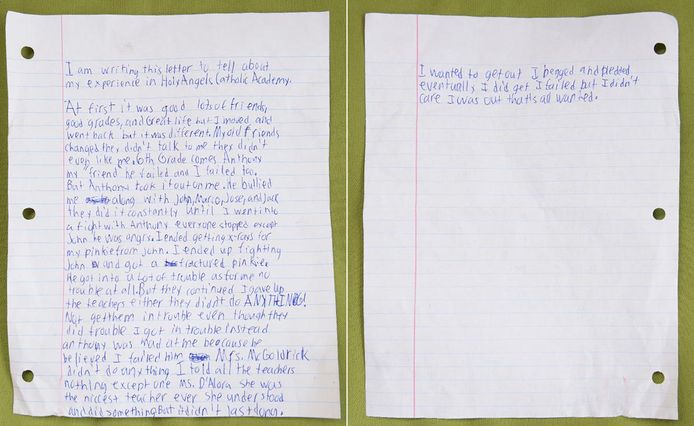 I am writing this letter to tell about
my experience in Holy Angels Catholic Academy.
At first it was good lots of friends,
good grades, and Great life but I moved and
went back but it was different. My old friends
changed they didn't talk to me they didn't
even like me. 6th Grade comes Anthony
my "friend" he failed and I failed too.
But Anthony took it out on me. He bullied
me along with John, Marco, Jose, and Jack
they did it constantly until I went into
a fight with Anthony everyone stopped except
John he was angry. I ended getting x-rays for
my pinkie from john. I ended up fighting
John and got a fractured pinkie.
He got into a lot of trouble as for me no
trouble at all. But they continued I gave up
the teachers either they didn't do ANYTHING!
Not get them in trouble even though they
did trouble I got in trouble instead
anthony was mad at me beecause be
believed I failed him Mrs. McGoldrick
didn't do any thing I told all the teachers
nothing except one Ms. D'Alora she was
the niccest teacher ever she understood
and did something. But it didn't last long.
I wanted to get out I begged and pleded
eventually I did get I failed but I didn't
care I was out thats all wanted.